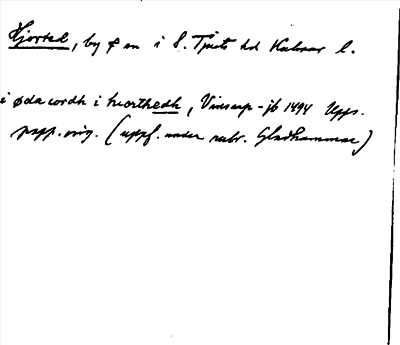 Hjorted, by o sn i S. Tjusts hd Kalmar l.
i øda iordh i hiorthedh, Vinsarp-jb 1494 Upps.
papp. orig. (uppf. under rubr. Gladhammar)